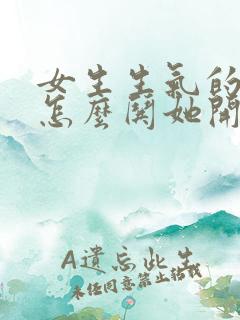 女生生氣的
怎麼鬨她開
A遺忘此生
未经同意禁止转载